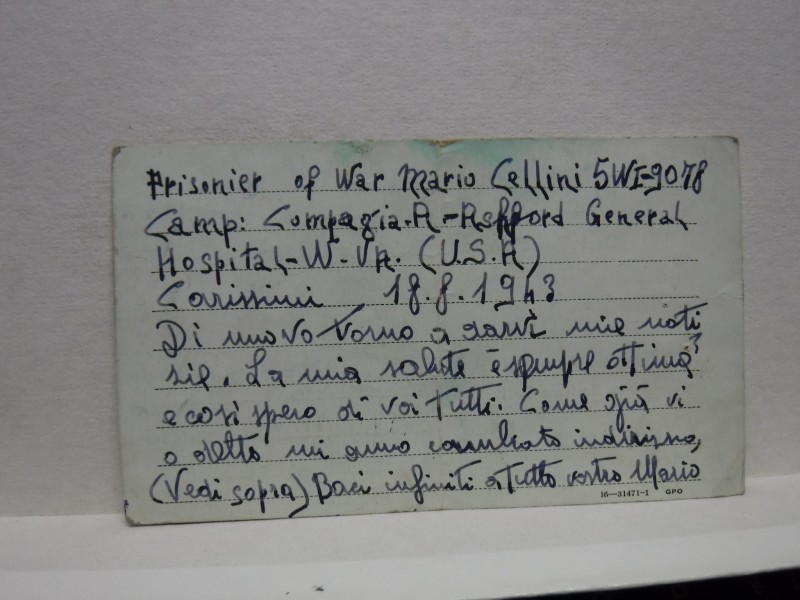 Prisonier of War Mario Cellini 5WI-9078
Camp: Compagia.A-Ashford General
Hospital-W-Va. (U.S.A)
Carissimi 18.8.1943
Di nuovo torno a darvi mie noti
zie. La mia salute è sempre ottima
e così spero di voi tutti. Come già vi
o detto mi anno cambiato indirizzo,
(Vedi sopra) Baci infiniti a tutti vostro Mario
16—31471-1 GPO